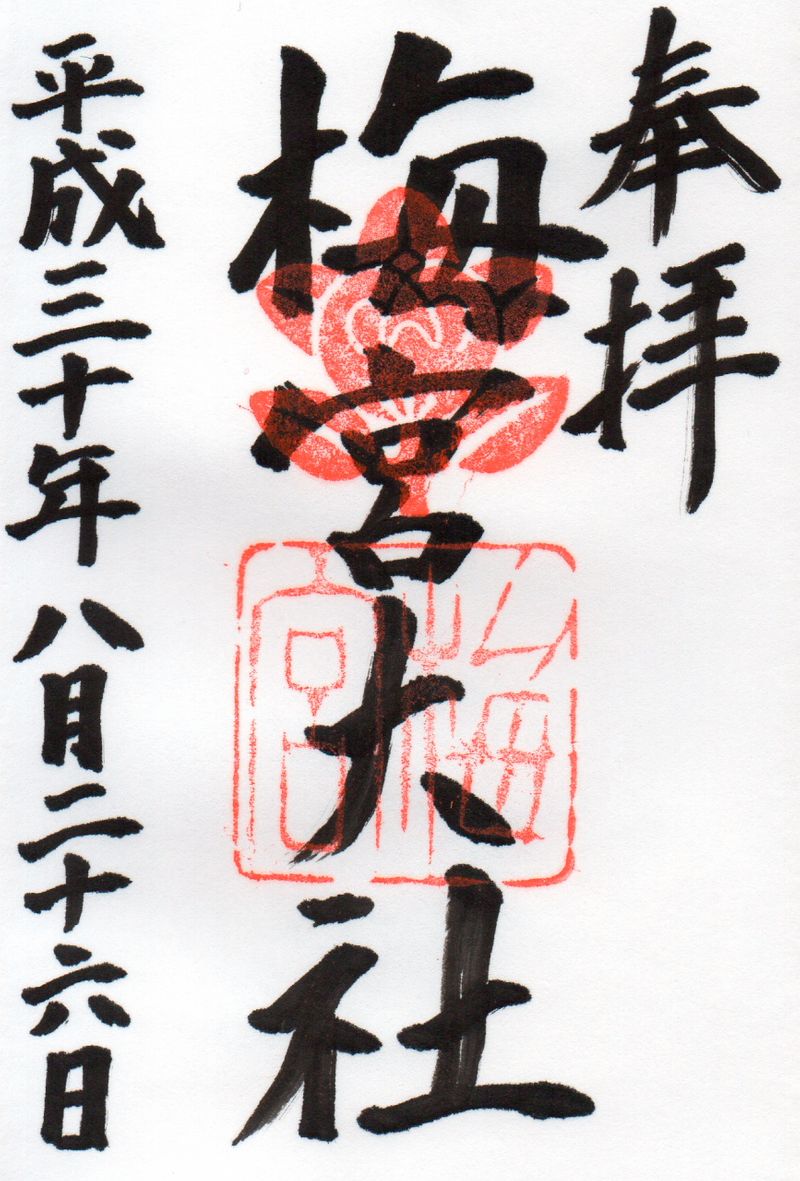 奉拝
梅宮大社
梅宮
平成三十年八月二十六日